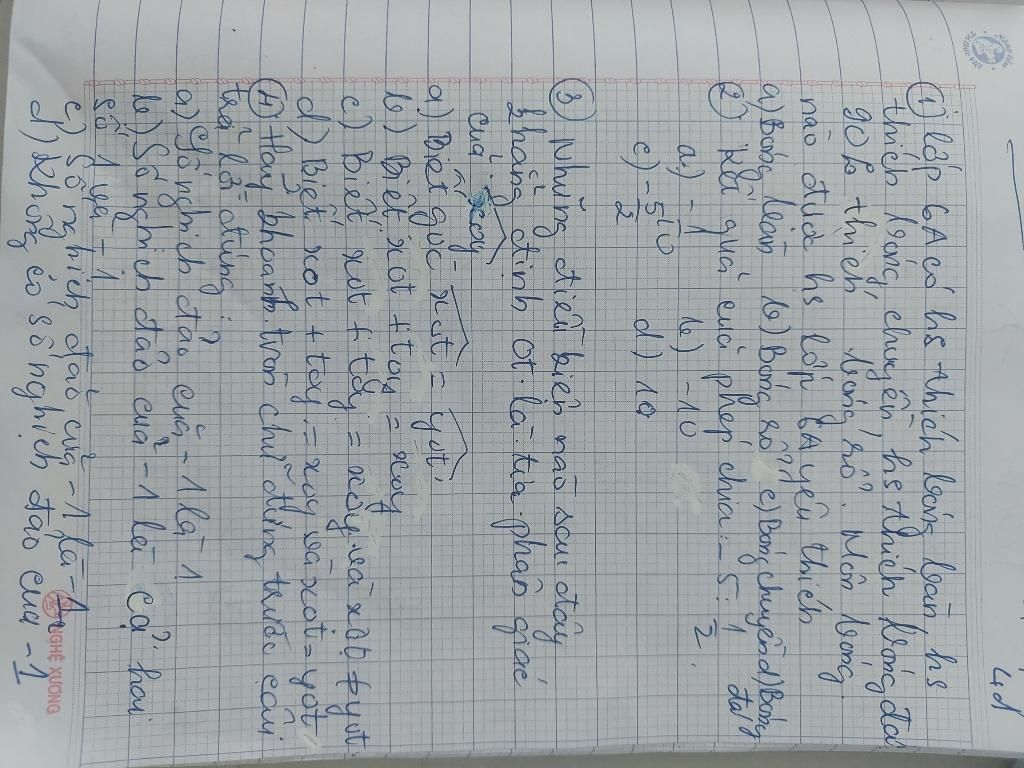 4d
① Lớp 6A có hs thích bóng bàn, hs
thích bóng chuyền, hs thích bóng đá
hs thích bóng rổ. Môn bóng
nào được hs lớp 6A yêu thích
a) Bóng bàn b) Bóng rổ c) Bóng chuyền d) Bóng
đá
② Kết quả của phép chia -5 : 1/2
a) -1/10 b) -10
c) -5/2 d) 10
③ Những điều kiện nào sau đây
khẳng định ot là tia phân giác
của góc xoy
a) Biết góc xot = yot
b) Biết xot + toy = xoy
c) Biết xot + toy = xoy và xot ≠ yot
d) Biết xot + toy = xoy và xot = yot
④ Hãy khoanh tròn chữ đứng trước câu
trả lời đúng:
a) Số nghịch đảo của -1 là 1
b) Số nghịch đảo của -1 là cả hai
số 1 và -1
c) Số nghịch đảo của -1 là -1
d) Không có số nghịch đảo của -1
NGHỆ XƯƠNG